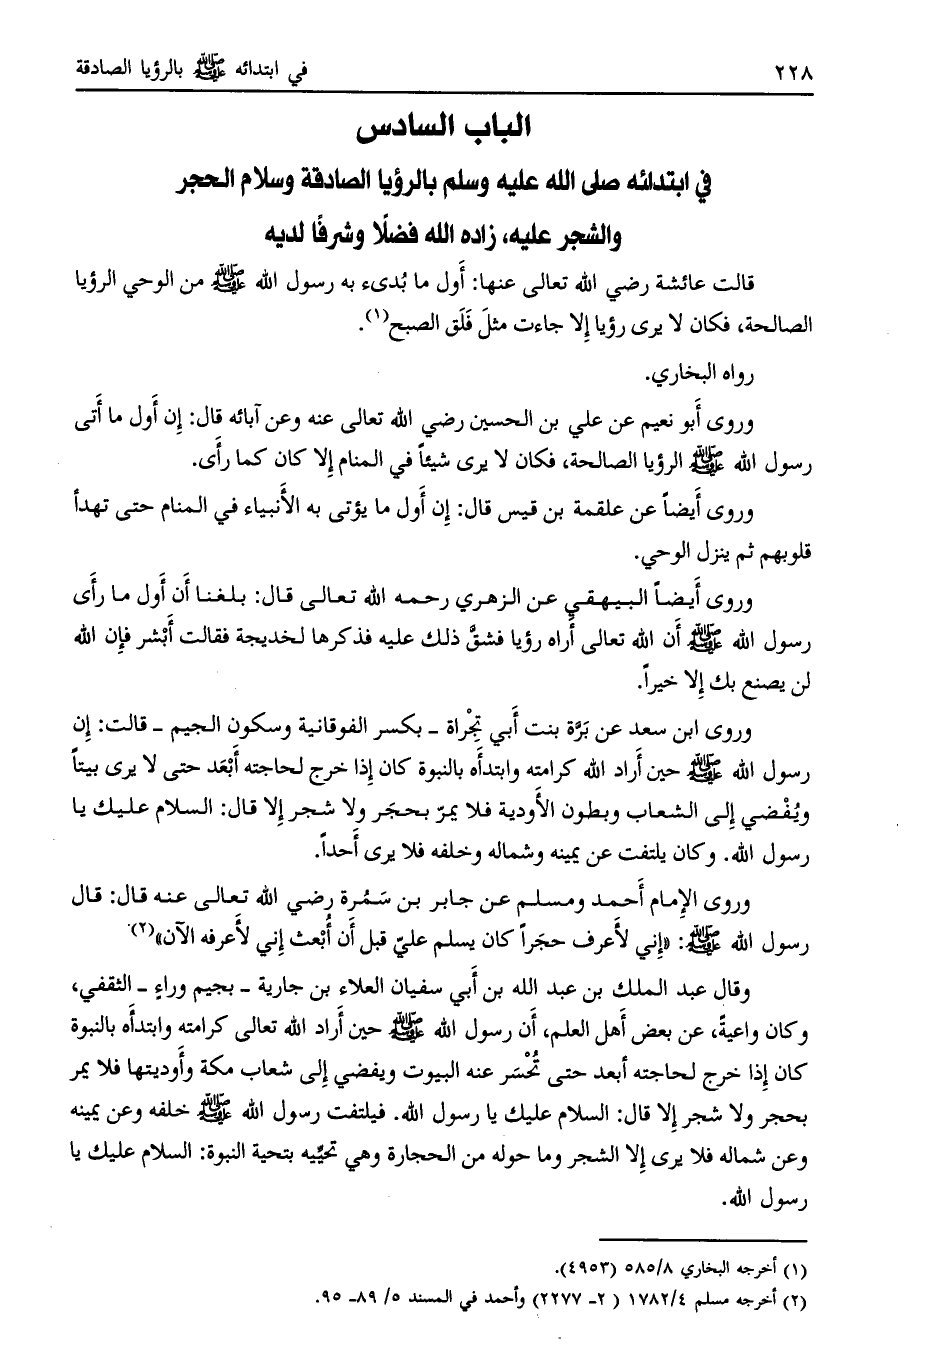 ٢٢٨ في ابتدائه ﷺ بالرؤيا الصادقة
الباب السادس
في ابتدائه صلى الله عليه وسلم بالرؤيا الصادقة وسلام الحجر
والشجر عليه، زاده الله فضلًا وشرفًا لديه
قالت عائشة رضي الله تعالى عنها: أَول ما بُدىء به رسول الله ﷺ من الوحي الرؤيا
الصالحة، فكان لا يرى رؤيا إِلا جاءت مثلَ فَلَق الصبح(١).
رواه البخاري.
وروى أَبو نعيم عن علي بن الحسين رضي الله تعالى عنه وعن آبائه قال: إِن أَول ما أَتى
رسول الله ﷺ الرؤيا الصالحة، فكان لا يرى شيئاً في المنام إِلا كان كما رأَى.
وروى أَيضاً عن علقمة بن قيس قال: إِن أَول ما يؤتى به الأَنبياء في المنام حتى تهدأَ
قلوبهم ثم ينزل الوحي.
وروى أَيضاً البيهقي عن الزهري رحمه الله تعالى قال: بلغنا أَن أَول ما رأَى
رسول الله ﷺ أَن الله تعالى أَراه رؤيا فشقَّ ذلك عليه فذكرها لخديجة فقالت أَبْشر فإِن الله
لن يصنع بك إِلا خيراً.
وروى ابن سعد عن بَرَّة بنت أَبي تِجْراة ـ بكسر الفوقانية وسكون الجيم ـ قالت: إِن
رسول الله ﷺ حين أَراد الله كرامته وابتدأَه بالنبوة كان إِذا خرج لحاجته أَبْعَد حتى لا يرى بيتاً
ويُفْضي إِلى الشعاب وبطون الأَودية فلا يمرّ بحجَر ولا شجر إِلا قال: السلام عليك يا
رسول الله. وكان يلتفت عن يمينه وشماله وخلفه فلا يرى أَحداً.
وروى الإِمام أَحمد ومسلم عن جابر بن سَمُرة رضي الله تعالى عنه قال: قال
رسول الله ﷺ: «إِني لأَعرف حجَراً كان يسلم عليّ قبل أَن أُبعث إِني لأَعرفه الآن»(٢).
وقال عبد الملك بن عبد الله بن أَبي سفيان العلاء بن جارية ـ بجيم وراءٍ ـ الثقفي،
وكان واعيةً، عن بعض أَهل العلم، أَن رسول الله ﷺ حين أَراد الله تعالى كرامته وابتدأَه بالنبوة
كان إِذا خرج لحاجته أبعد حتى تُحْسَر عنه البيوت ويفضي إِلى شعاب مكة وأَوديتها فلا يمر
بحجر ولا شجر إِلا قال: السلام عليك يا رسول الله. فيلتفت رسول الله ﷺ خلفه وعن يمينه
وعن شماله فلا يرى إِلا الشجر وما حوله من الحجارة وهي تحيِّيه بتحية النبوة: السلام عليك يا
رسول الله.
(١) أخرجه البخاري ٥٨٥/٨ (٤٩٥٣).
(٢) أخرجه مسلم ١٧٨٢/٤ ( ٢ـ ٢٢٧٧) وأحمد في المسند ٥/ ٨٩ـ ٩٥.